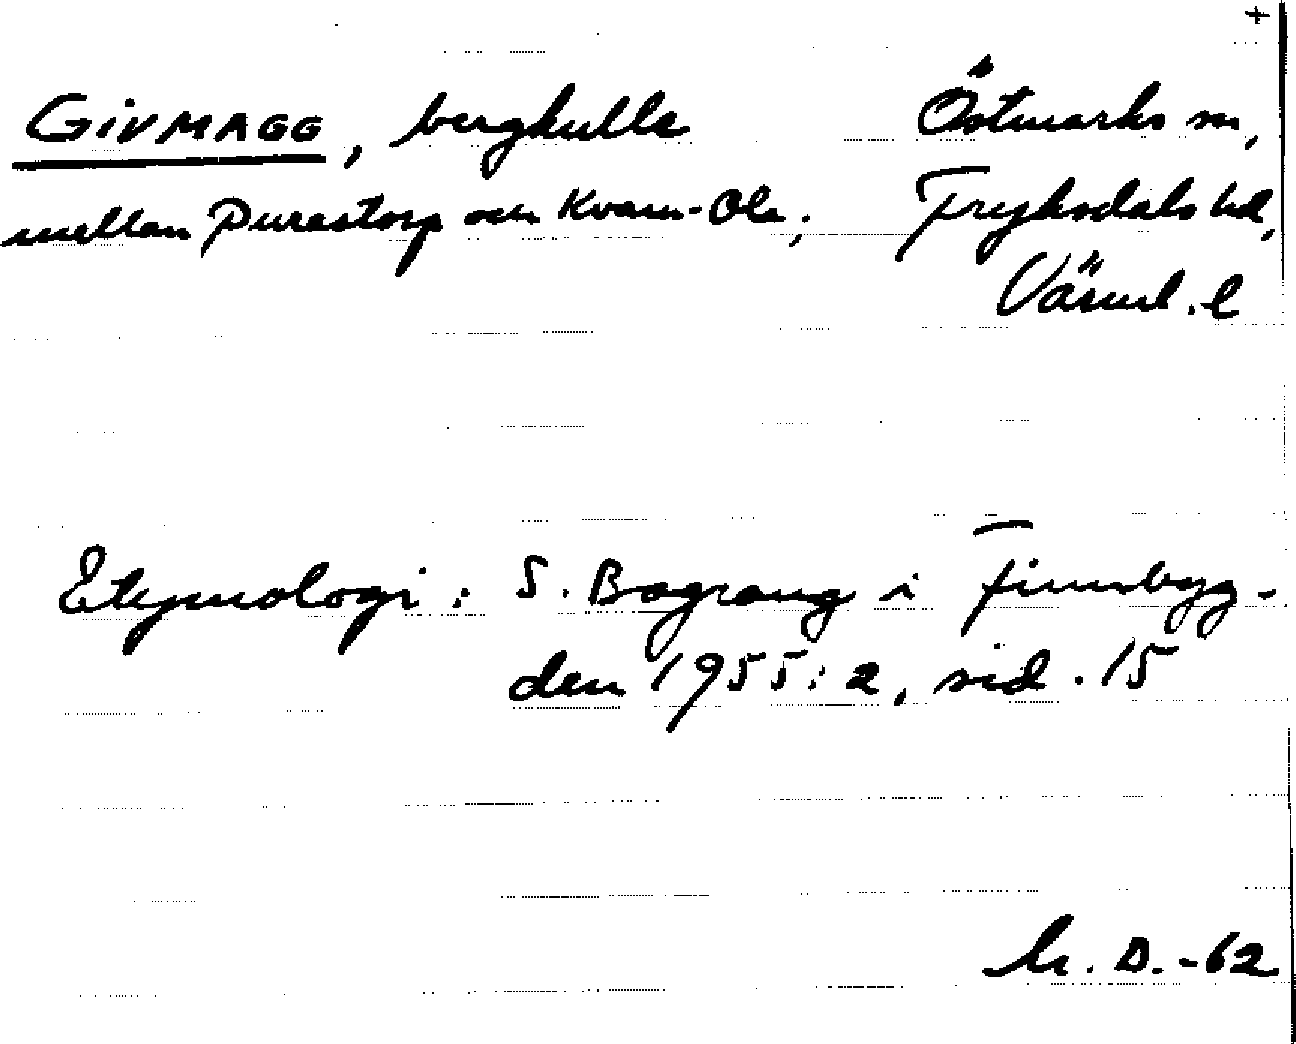 +
GIVMAGG, bergkulle Östmarks sn,
mellan Purastorp och Kvarn-Ola; Fryksdals hd,
Värml. l
Etymologi: S. Bograng i Finnbyg-
den 1955:2, sid. 15
D. -62